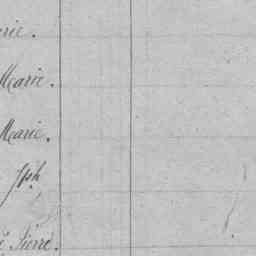 rie.
Marie.
Marie.
Jph
Pierre.